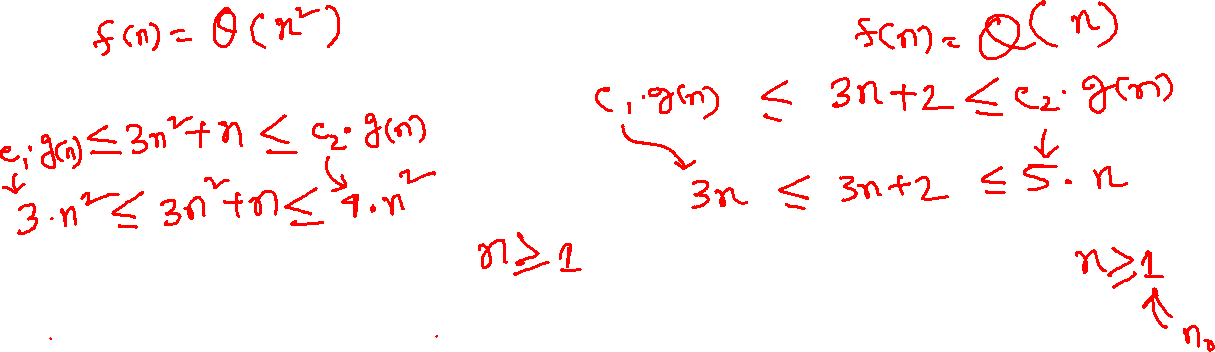 f(n) = θ(n²)
c₁·g(n) ≤ 3n²+n ≤ c₂·g(n)
3·n² ≤ 3n²+n ≤ 4·n²
n ≥ 1
f(n) = θ(n)
c₁·g(n) ≤ 3n+2 ≤ c₂·g(n)
3n ≤ 3n+2 ≤ 5·n
n ≥ 1
n₀